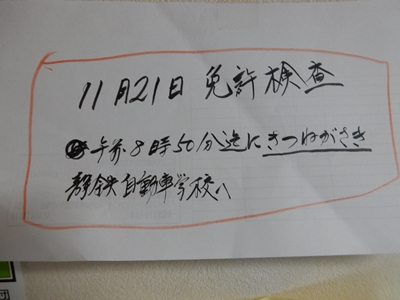 11月21日 免許検査
午前8時50分迄にきつねがさき
静鉄自動車学校へ